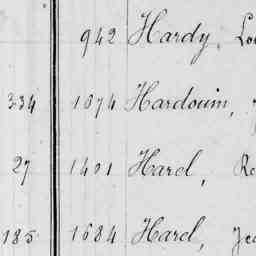 942 Hardy, Lou
334 1074 Hardouin,
27 1401 Harel, Re
185 1684 Harel, Jea